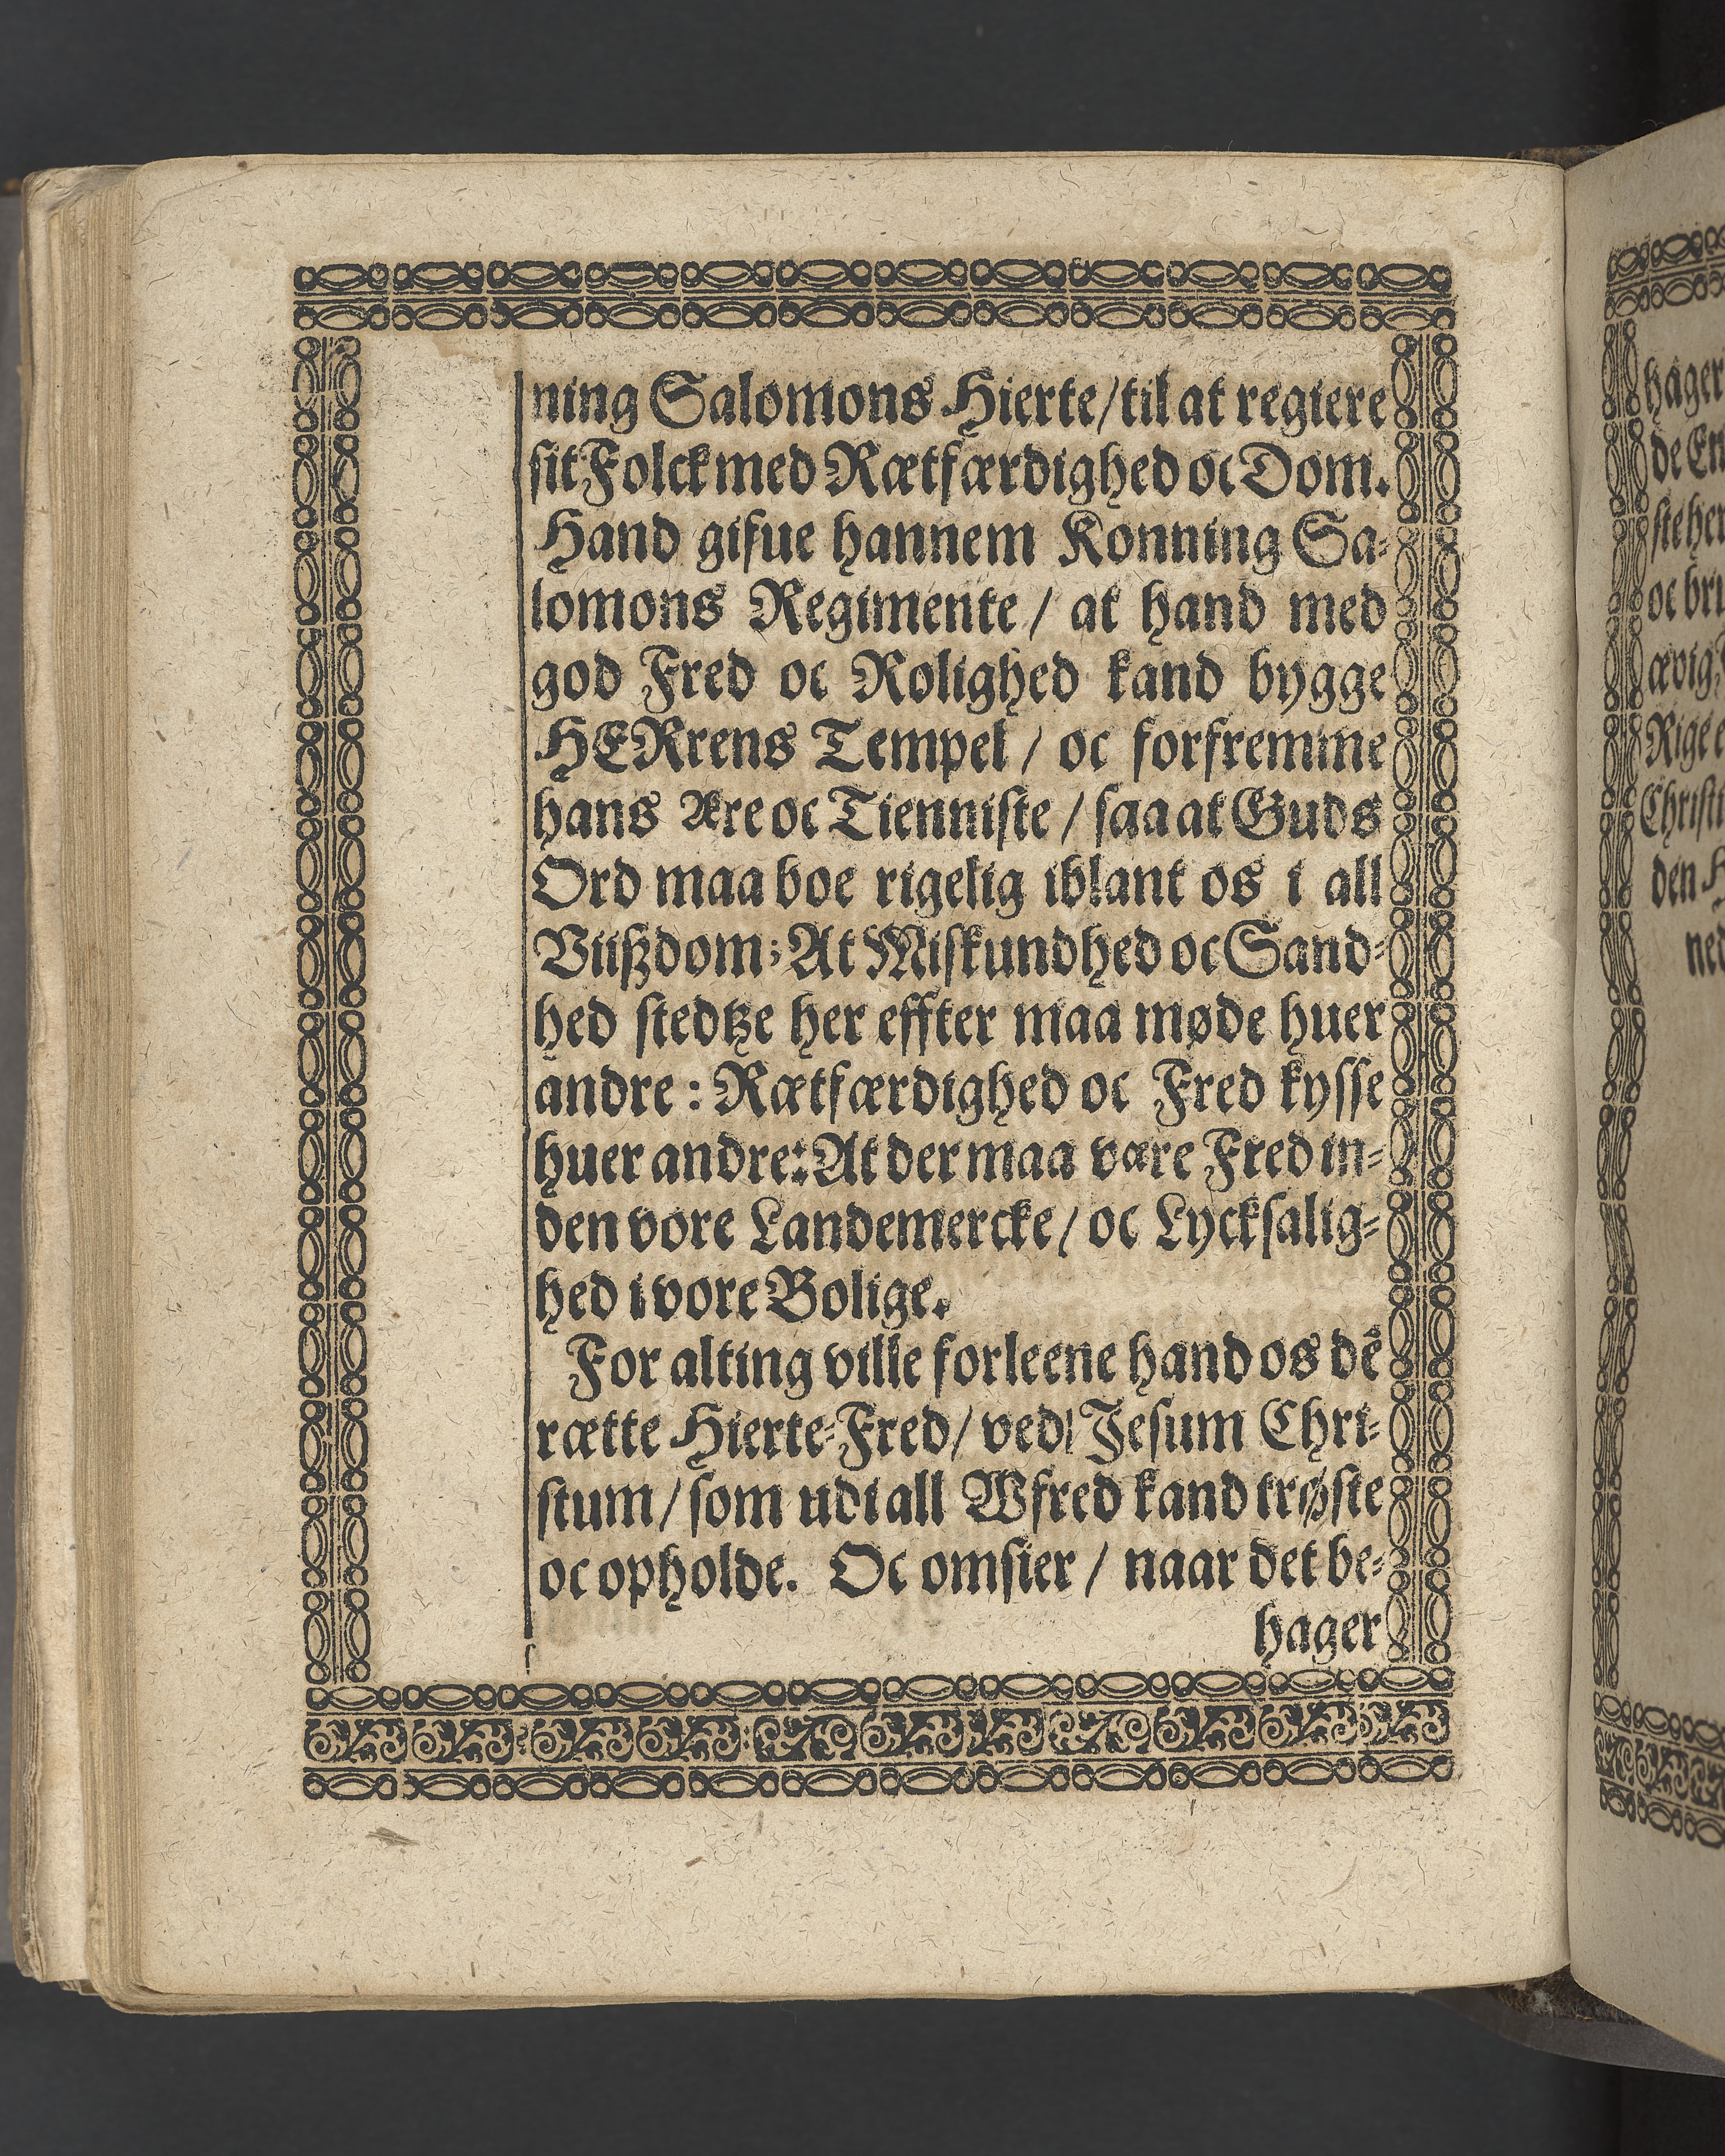 ning Salomons Hierte/ til at regiere
sit Folck med Rætfærdighed oc Dom.
Hand gifue hannem Konning Sa-
lomons Regimente / at hand med
god Fred oc Rolighed kand bygge
HERrens Tempel / oc forfremme
hans Ære oc Tienniste / saa at Guds
Ord maa boe rigelig iblant os i all
Viißdom; At Miskundhed oc Sand-
hed stedtze her effter maa møde huer
andre : Rætfærdighed oc Fred kysse
huer andre: At der maa være Fred in-
den vore Landemercke/ oc Lycksalig-
hed i vore Bolige.
For alting ville forleene hand os dẽ
rætte Hierte-Fred/ ved Jesum Chri-
stum/ som udi all Wfred kand trøste
oc opholde. Oc omsier / naar det be-
hager
hager
de En
ste her
oc bru
ævig
Rige e
Christi
den H
ned